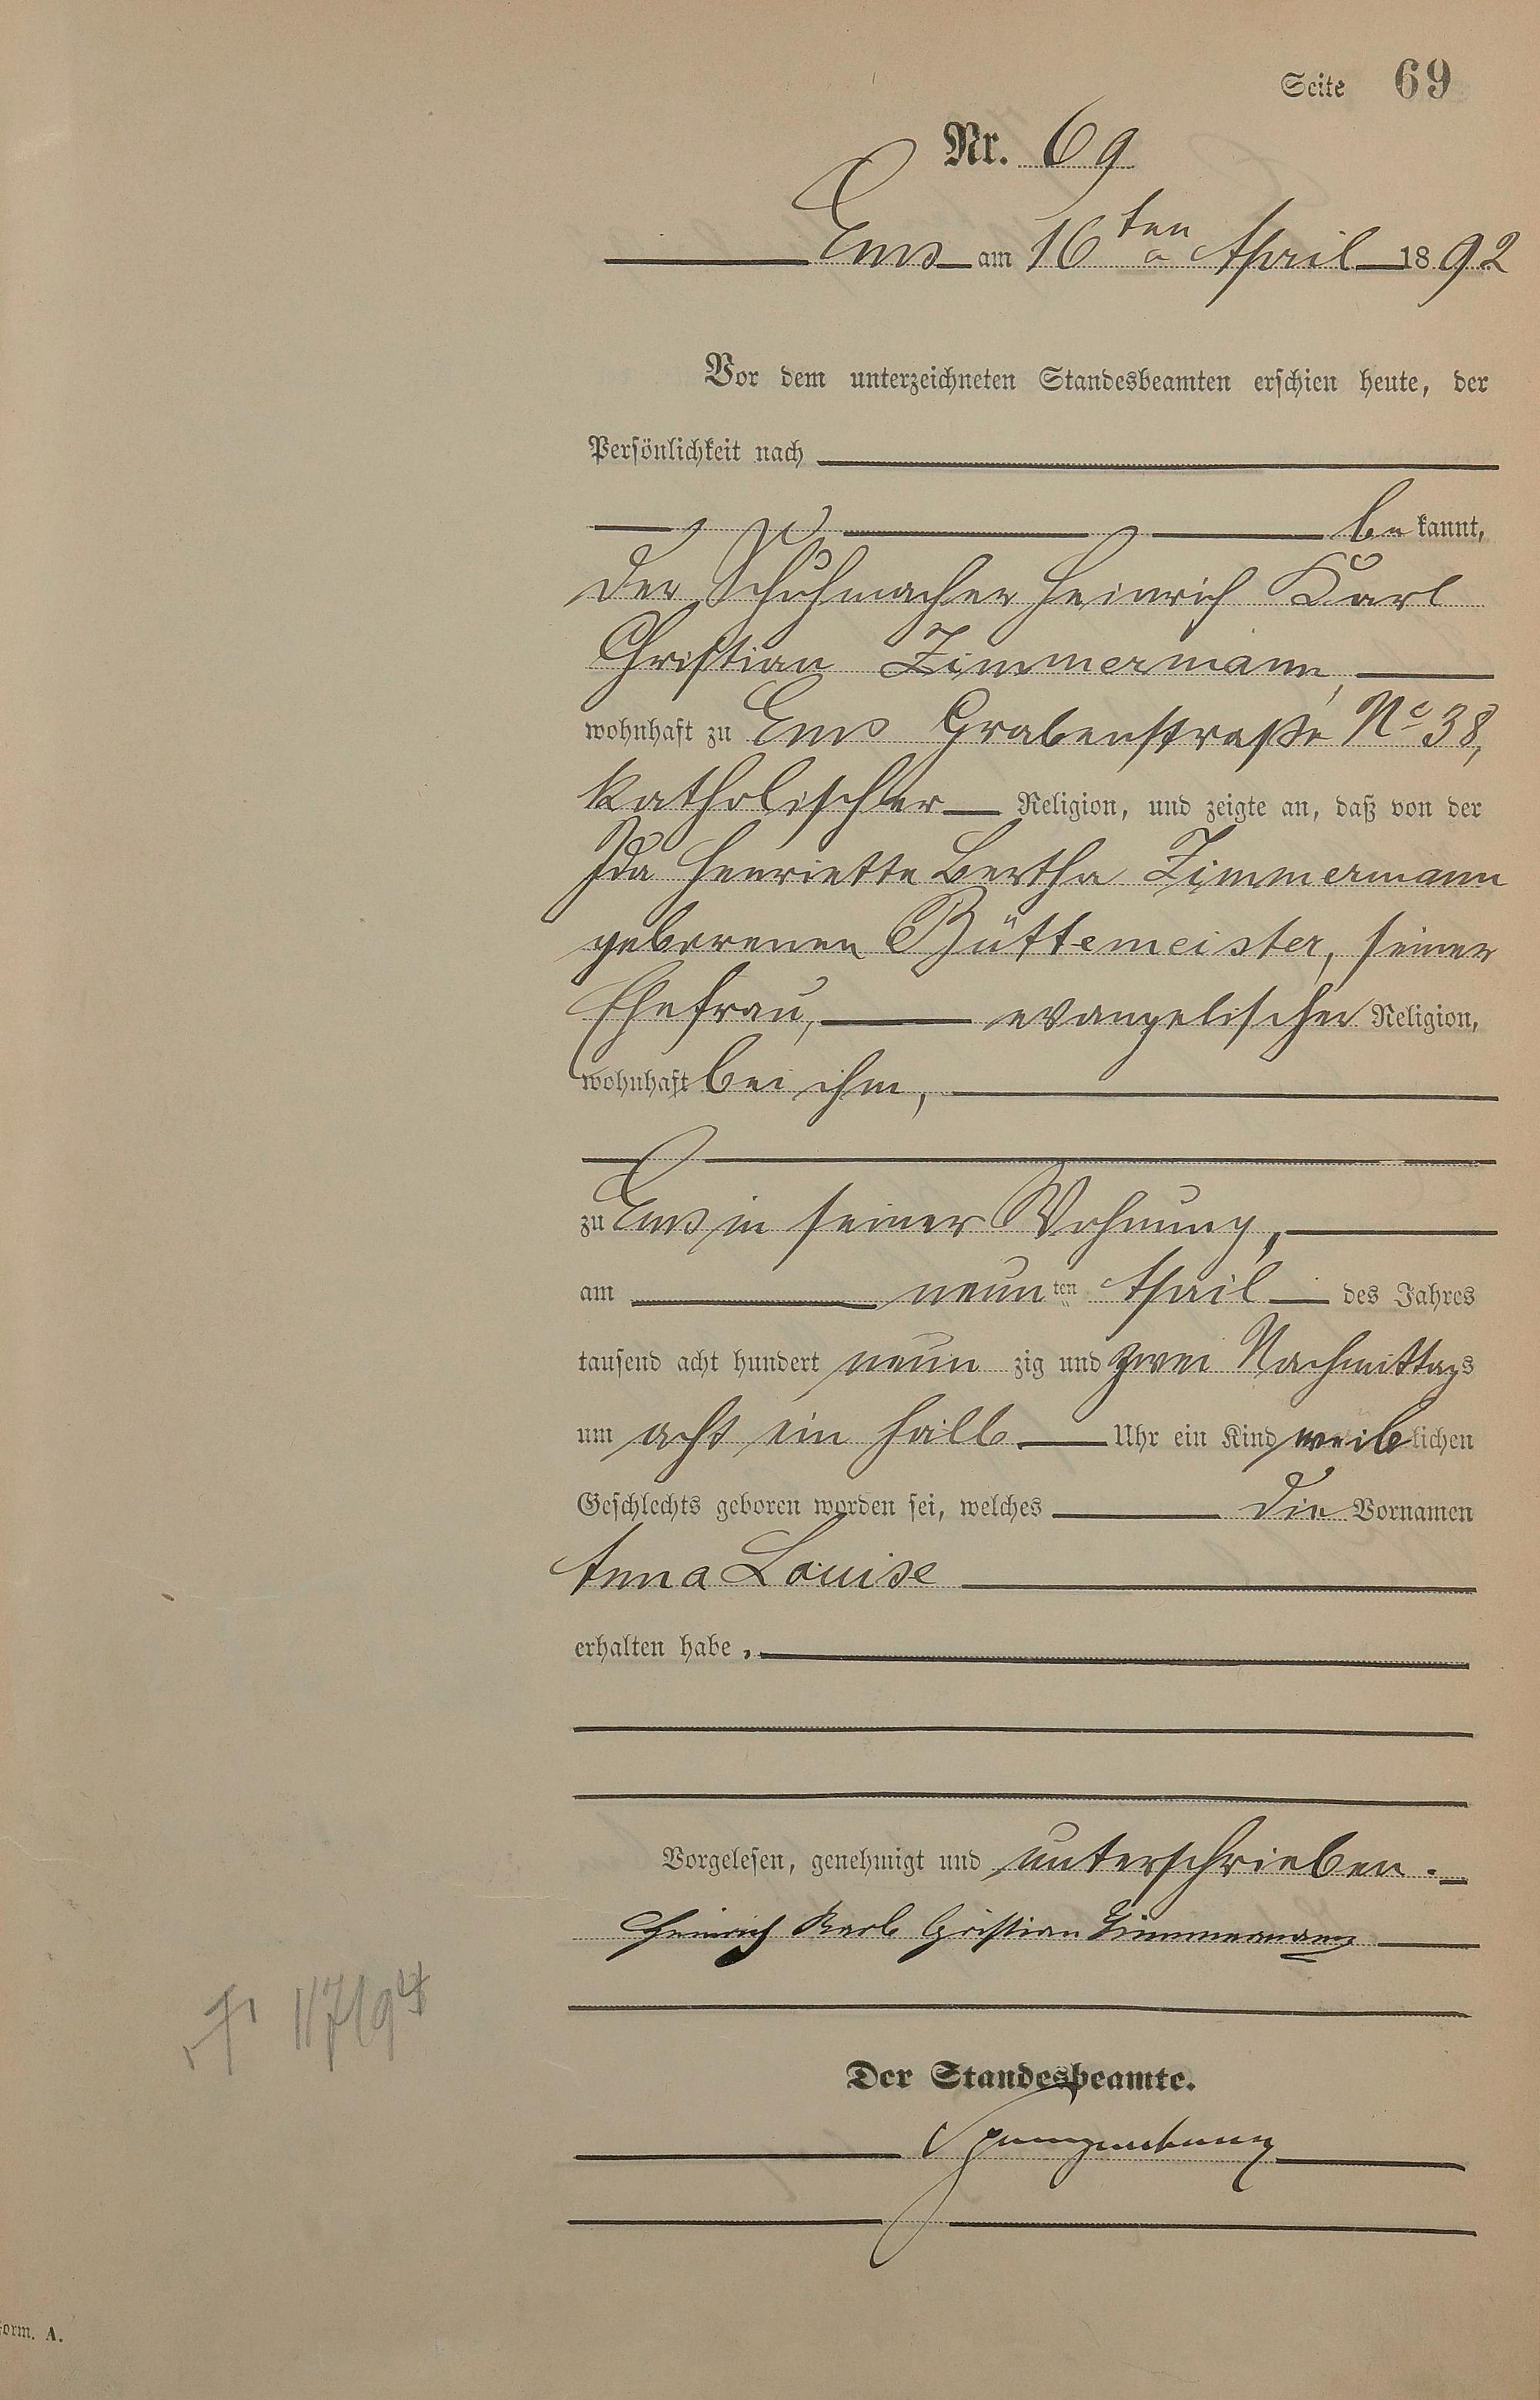 Seite 69
Nr. 69
Ems am 16ten April 1892
Vor dem unterzeichneten Standesbeamten erschien heute, der
Persönlichkeit nach
bekannt,
der Schuhmacher Heinrich Karl
Christian Zimmermann,
wohnhaft zu Ems Grabenstraße No 38,
katholischer Religion, und zeigte an, daß von der
Ida Henriette Bertha Zimmermann
geborenen Büttemeister, seiner
Ehefrau, evangelischer Religion,
wohnhaft bei ihm,
zu Ems in seiner Wohnung,
am neunten April des Jahres
tausend acht hundert neunzig und zwei Nachmittags
um acht ein halb Uhr ein Kind weiblichen
Geschlechts geboren worden sei, welches die Vornamen
Anna Louise
erhalten habe.
Vorgelesen, genehmigt und unterschrieben.
Heinrich Karl Christian Zimmermann
Der Standesbeamte.
Spangenberg
Form. A.